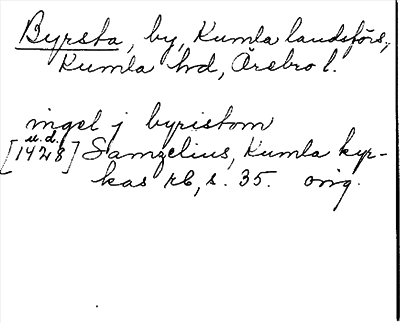 Byrsta, by, Kumla landsförs.,
Kumla hd, Örebro l.
ingel j byristom
u.d.
[1428] Samzelius, Kumla kyr-
kas rb, s. 35. orig.